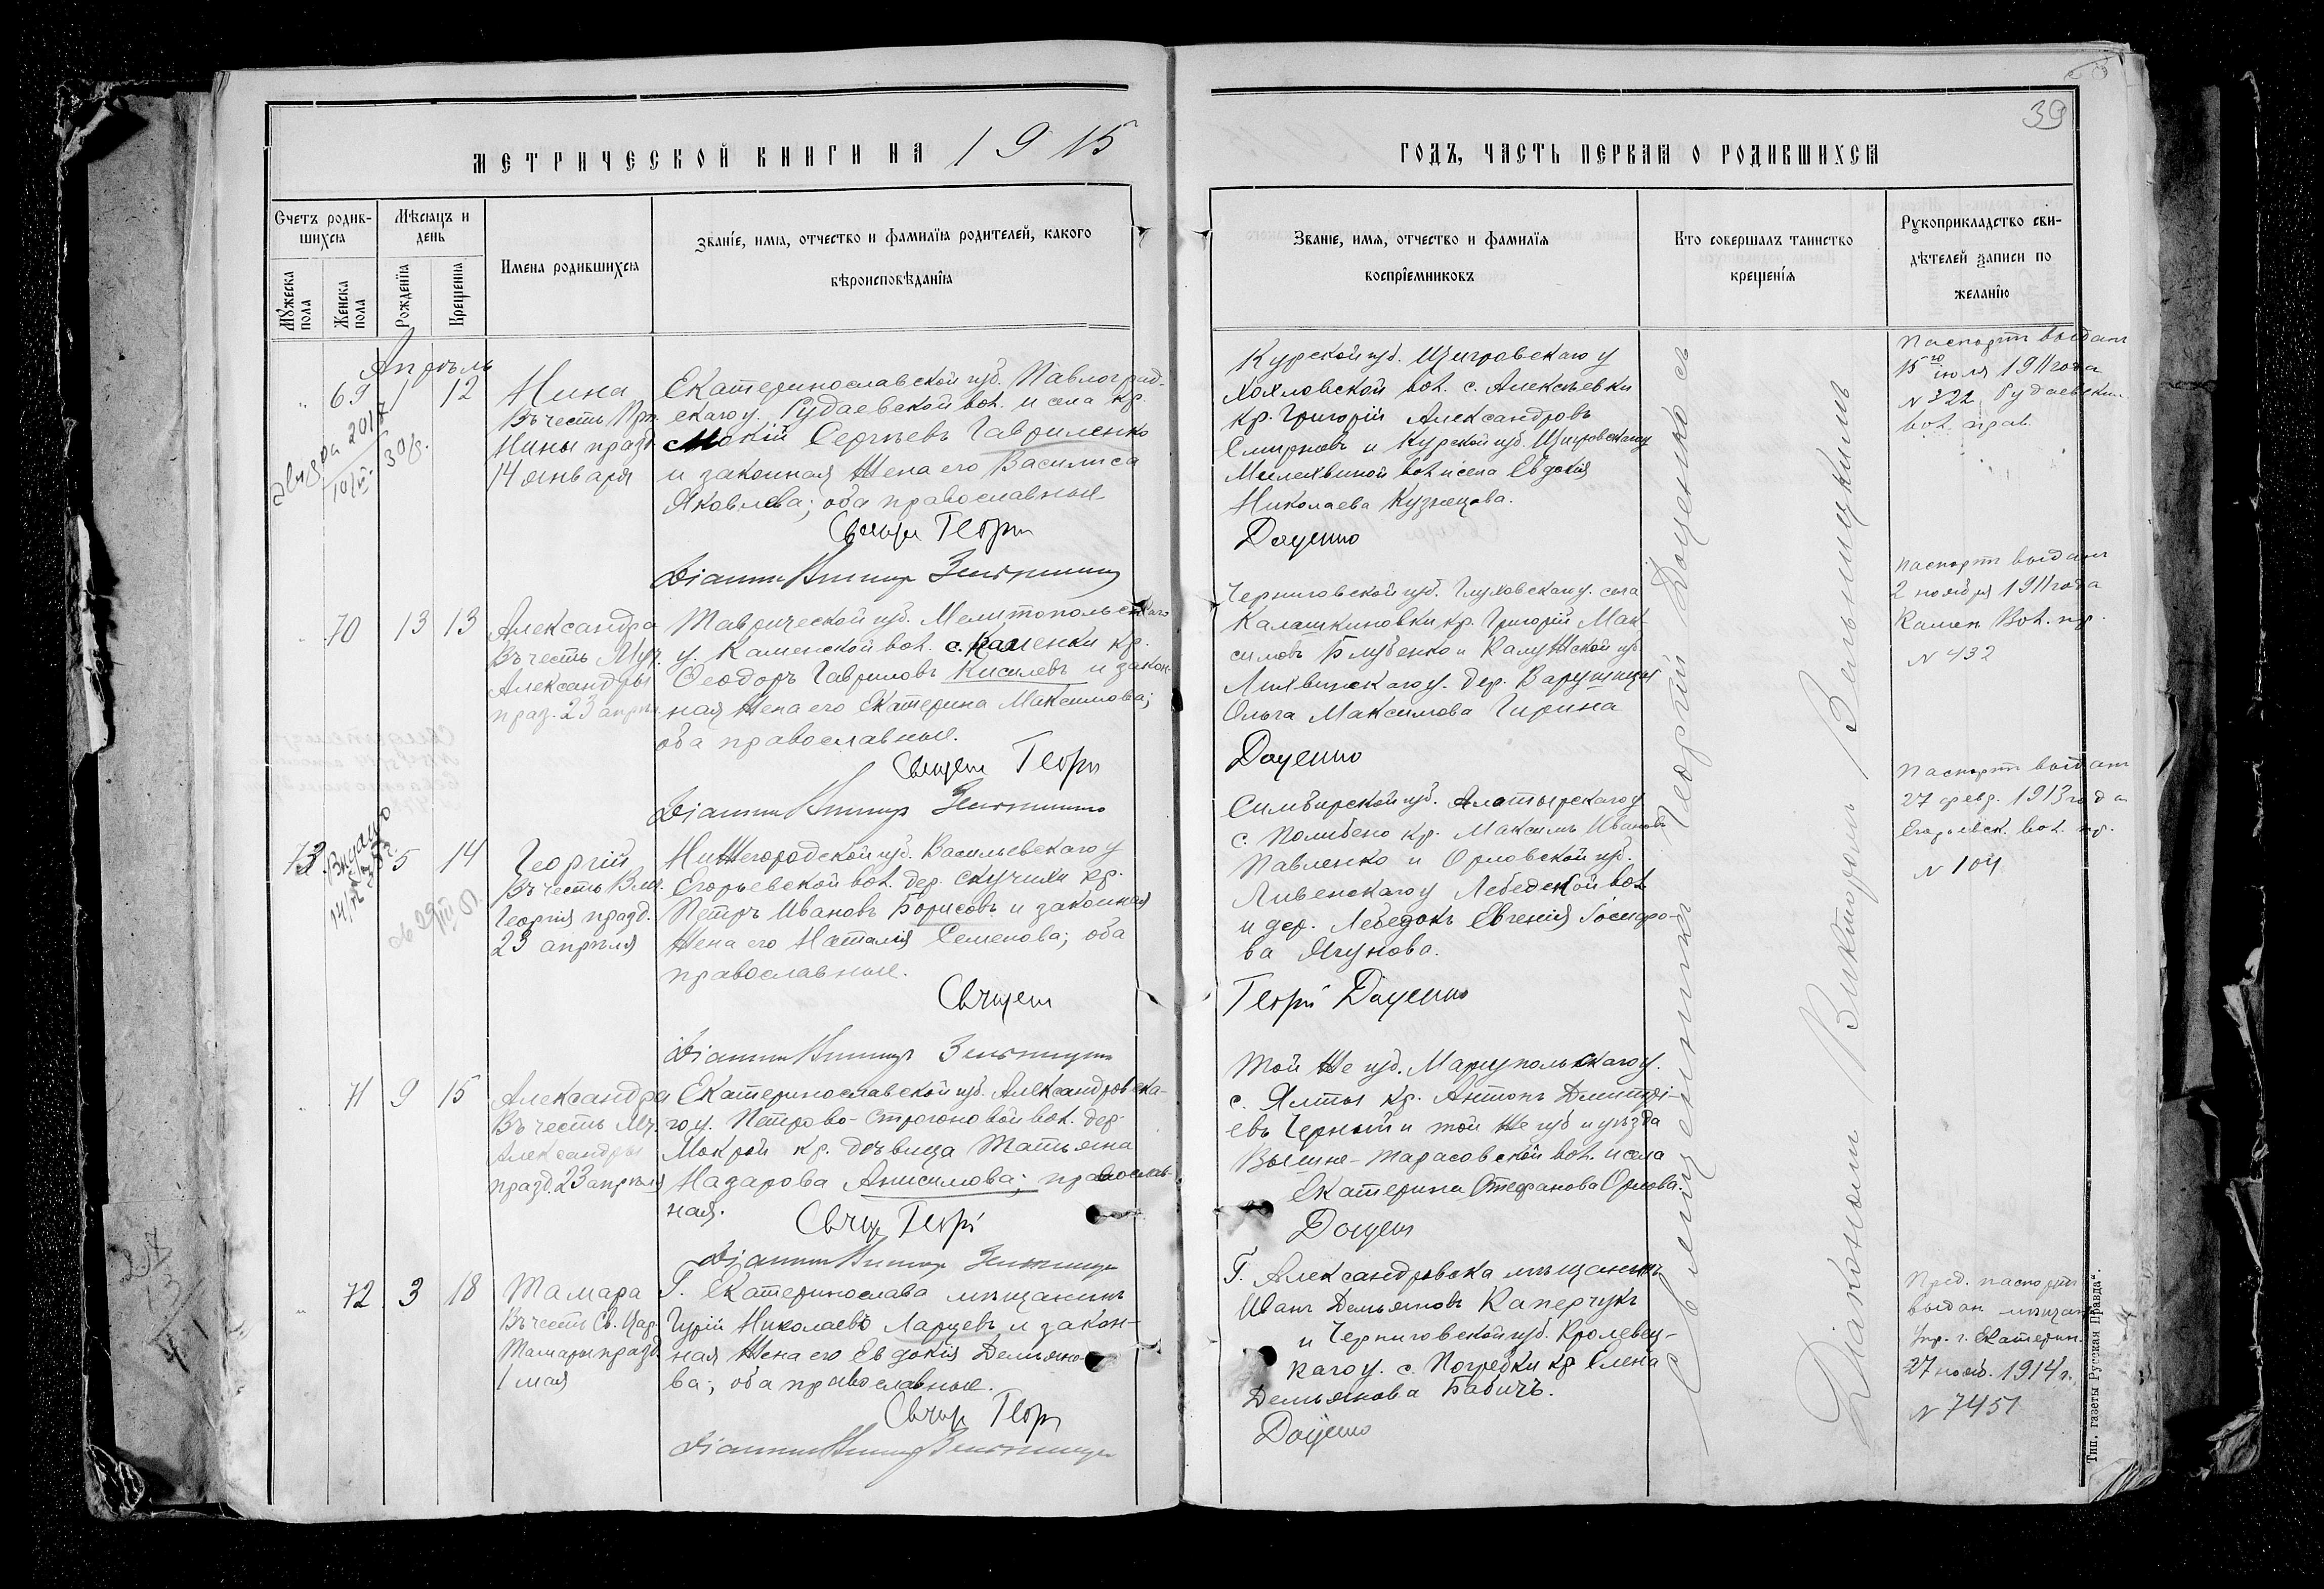 39
МЕТРИЧЕСКОЙ КНИГИ НА 1915
ГОДЪ, ЧАСТЬ ПЕРВАЯ О РОДИВШИХСЯ
Счетъ родив-
шихся
Мѣсяцъ и
день
Мужеска
пола
Женска
пола
Рожденія
Крещенія
Имена родившихся
Званіе, имя, отчество и фамилія родителей, какого
вѣроисповѣданія
Званіе, имя, отчество и фамилія
воспріемниковъ
Кто совершалъ таинство
крещенія
Рукоприкладство сви-
дѣтелей записи по
желанію
Апрѣль
69 1 12
Нина
Въ честь Пр.
Нины празд.
14 января
Екатеринославской губ. Павлоград-
скаго у. Гудаевской вол. и села кр.
Мокій Сергѣевъ Гавриленко
и законная жена его Василиса
Яковлева; оба православные
Курской губ. Щигровскаго у
Хохловской вол. с. Алексѣевки
кр. Григорій Александровъ
Смирновъ и Курской губ. Щигровскаго у
вол. и села Евдокія
Николаева Кузнецова.
Доценко
Паспортъ выданъ
15го іюля 1911 года
N 322
вол. прав.
70 13 13
Александра
Въ честь Муч.
Александры
праз. 23 апрѣл.
Таврической губ. Мелитопольскаго
у. Каменской вол. с. Каменки кр.
Ѳеодоръ Гавриловъ Киселевъ и закон-
ная жена его Екатерина Максимова;
оба православные.
Черниговской губ. Глуховскаго у. села
Калашниковки кр. Григорій Мак-
симовъ Блубенко и Калужской губ.
Лихвинскаго у. дер.
Ольга Максимова Гирина
Доценко
Паспортъ выданъ
2 ноября 1911 года
Камен. Вол. пр.
N 432
73 5 14
Георгій
Въ честь Влм.
Георгія празд.
23 апрѣля
Нижегородской губ. Васильевскаго у
Егорьевской вол. дер. Скучихи кр.
Петръ Ивановъ Борисовъ и законная
жена его Наталія Семенова; оба
православные.
Симбирской губ. Алатырскаго у
с. Полибено кр. Максимъ Ивановъ
Павленко и Орловской губ.
Ливенскаго у Лебедской вол.
и дер. Лебедокъ Евгенія
ва Ягунова.
Георгій Доценко
Паспортъ выданъ
27 февр. 1913 года
Егорьевск. вол. пр.
N 104
71 9 15
Александра
Въ честь Мч.
Александры
празд. 23 апрѣля
Екатеринославской губ. Александровска-
го у. Петрово-Строгоновой вол. дер.
Мокрой кр. дѣвица Татьяна
Назарова Анисимова; православ-
ная.
Той же губ. Маріупольскаго у.
с. Ялты кр. Антонъ Дмитрі-
евъ Черный и той же губ и уѣзда
Вышне-Тарасовской вол. и села
Екатерина Стефанова Орлова.
72 3 18
Тамара
Въ честь Св. Цар.
Тамары празд
1 мая
Г. Екатеринослава мѣщанинъ
Гурій Николаевъ Ларцевъ и закон-
ная жена его Евдокія Демьяно-
ва; оба православные.
Г. Александровска мѣщанинъ
Иванъ Демьяновъ Каперчукъ
и Черниговской губ. Кролевец-
каго у. с. Погребки кр. Елена
Демьянова Бабичъ.
Доценко
Пред. паспортъ
выдан мѣщан.
Упр. г. Екатерин.
27 нояб. 1914 г.
N 7451
Священникъ Георгій Доценко съ
Діакономъ Викторомъ Вельмицкимъ
Тип. газеты „Русская Правда".